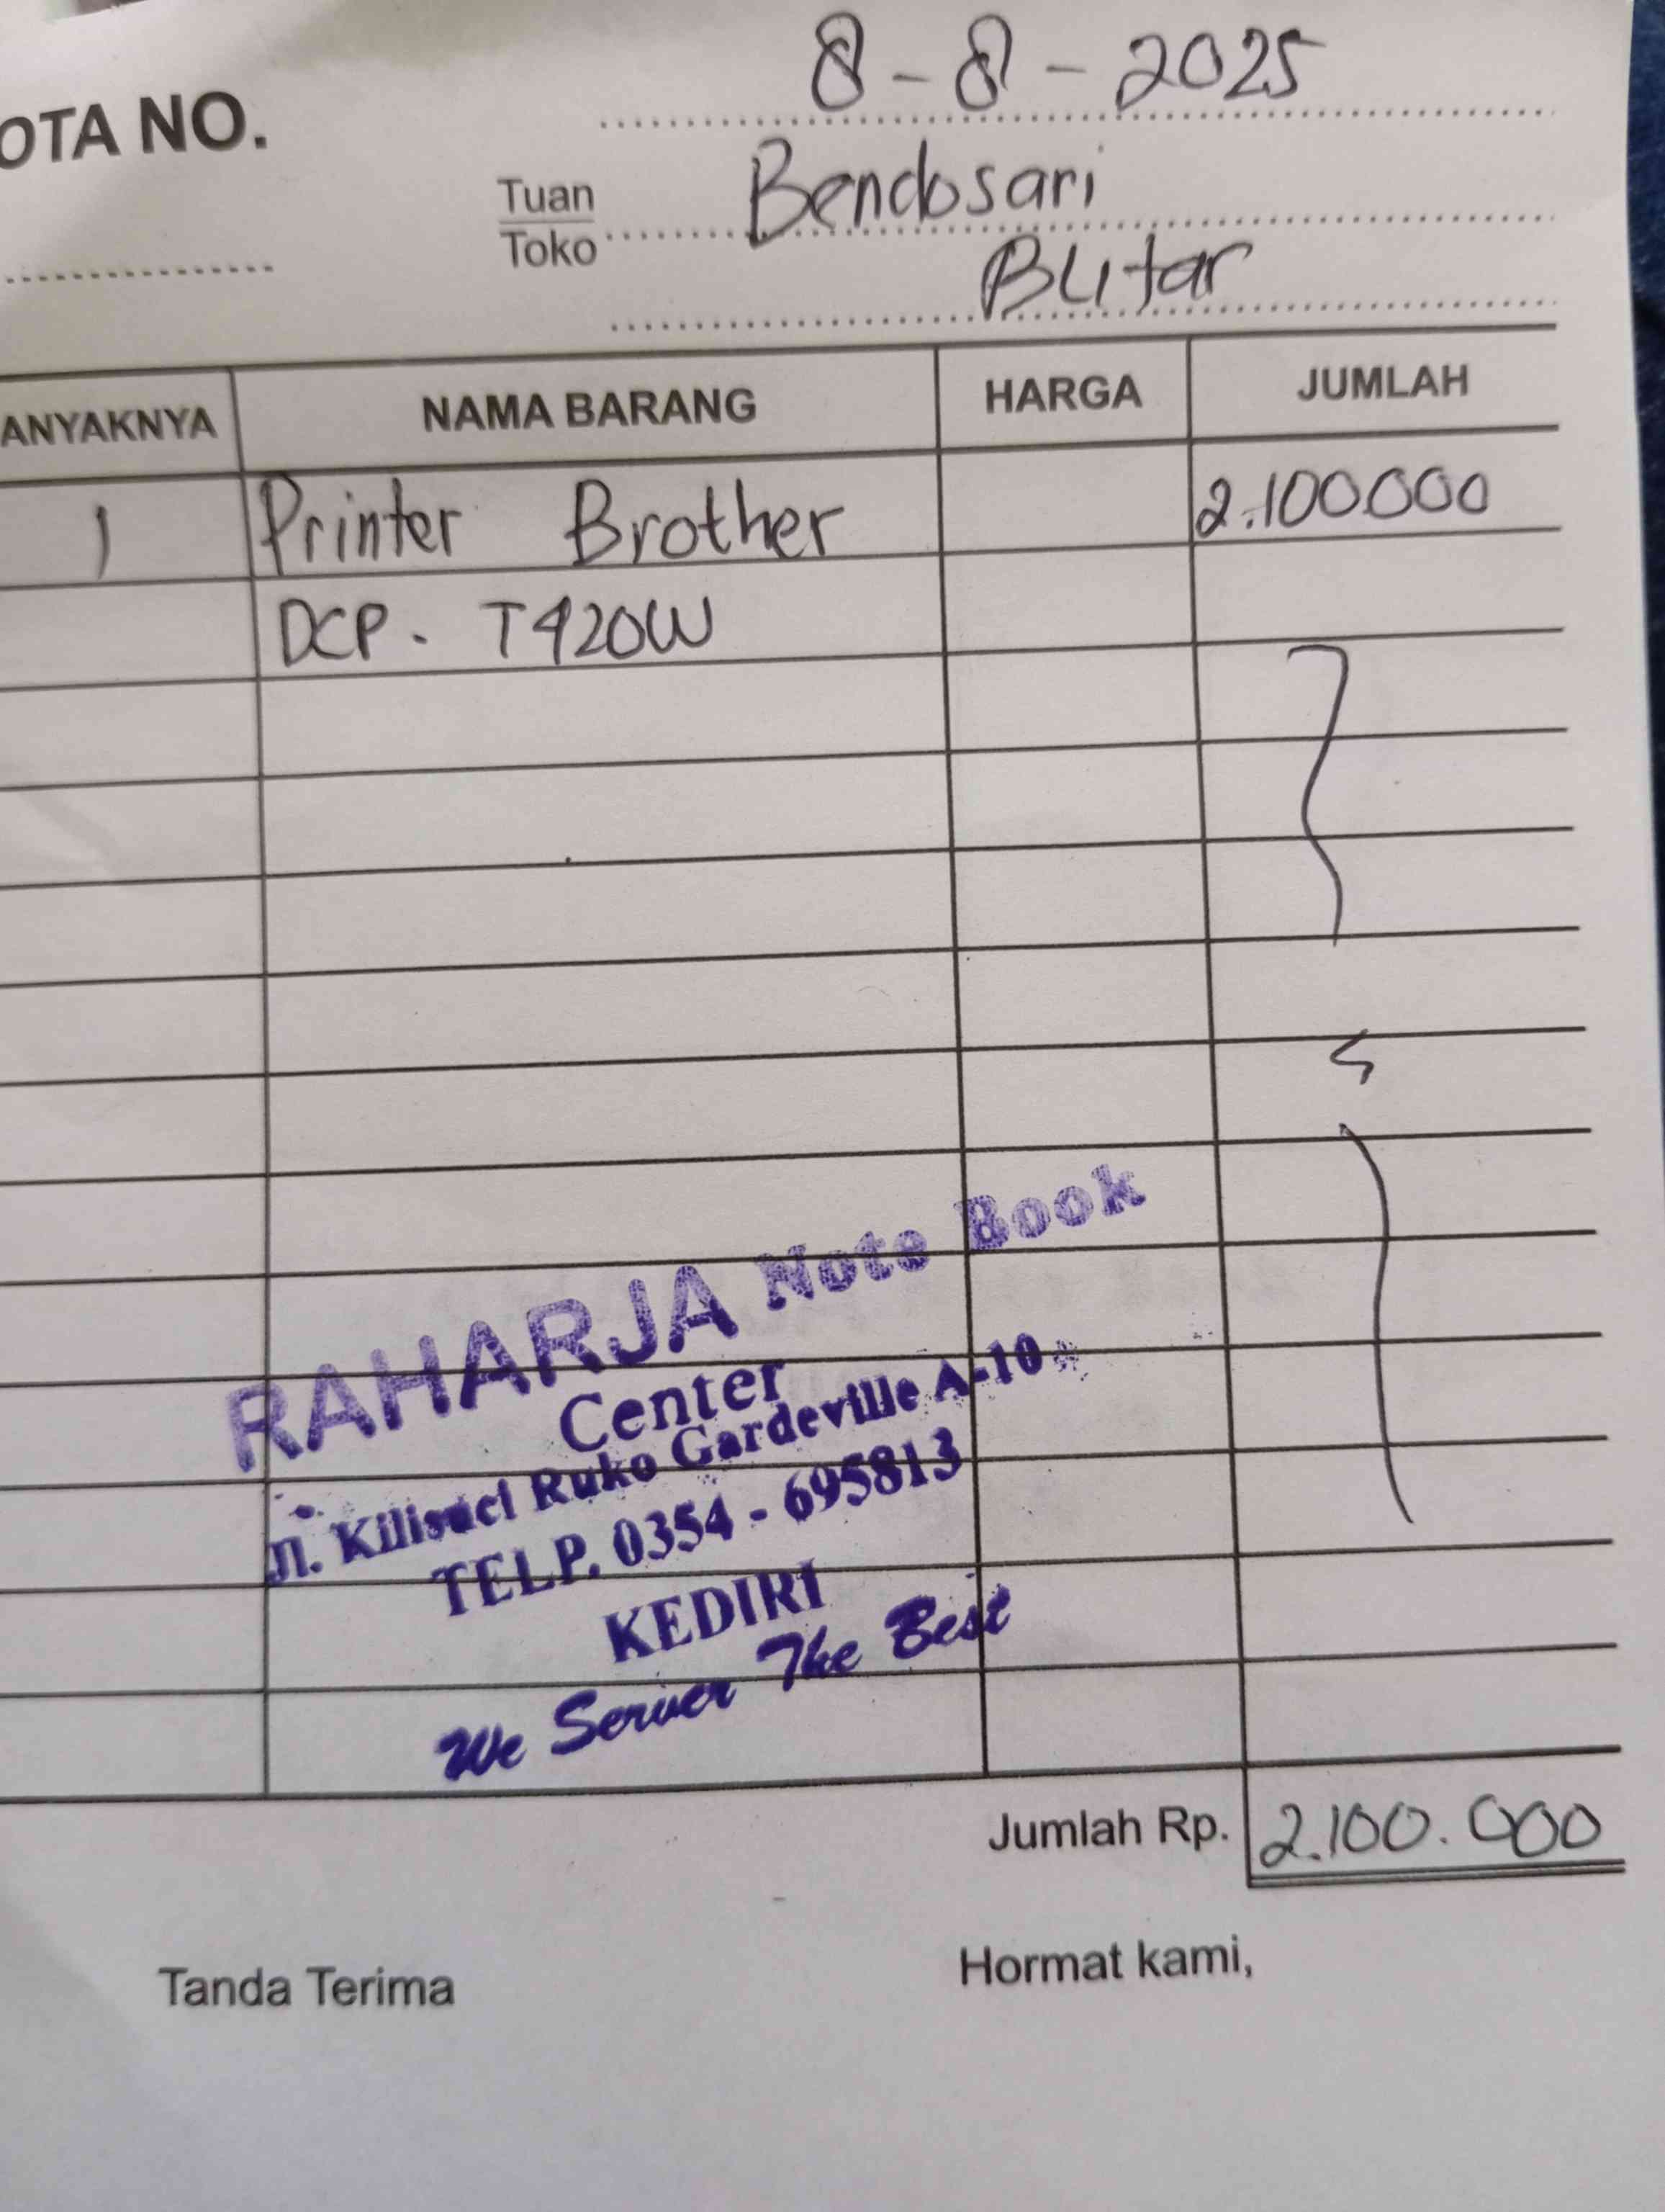 8-8-2025
OTA NO.
Tuan
Toko
Bendosari
Blitar
ANYAKNYA NAMA BARANG HARGA JUMLAH
1 Printer Brother 2.100.000
DCP - T420W
RAHARJA Note Book
Center
Jl. Kilisuci Ruko Gardeville A-10
TELP. 0354 - 695813
KEDIRI
We Server The Best
Jumlah Rp. 2.100.000
Tanda Terima Hormat kami,